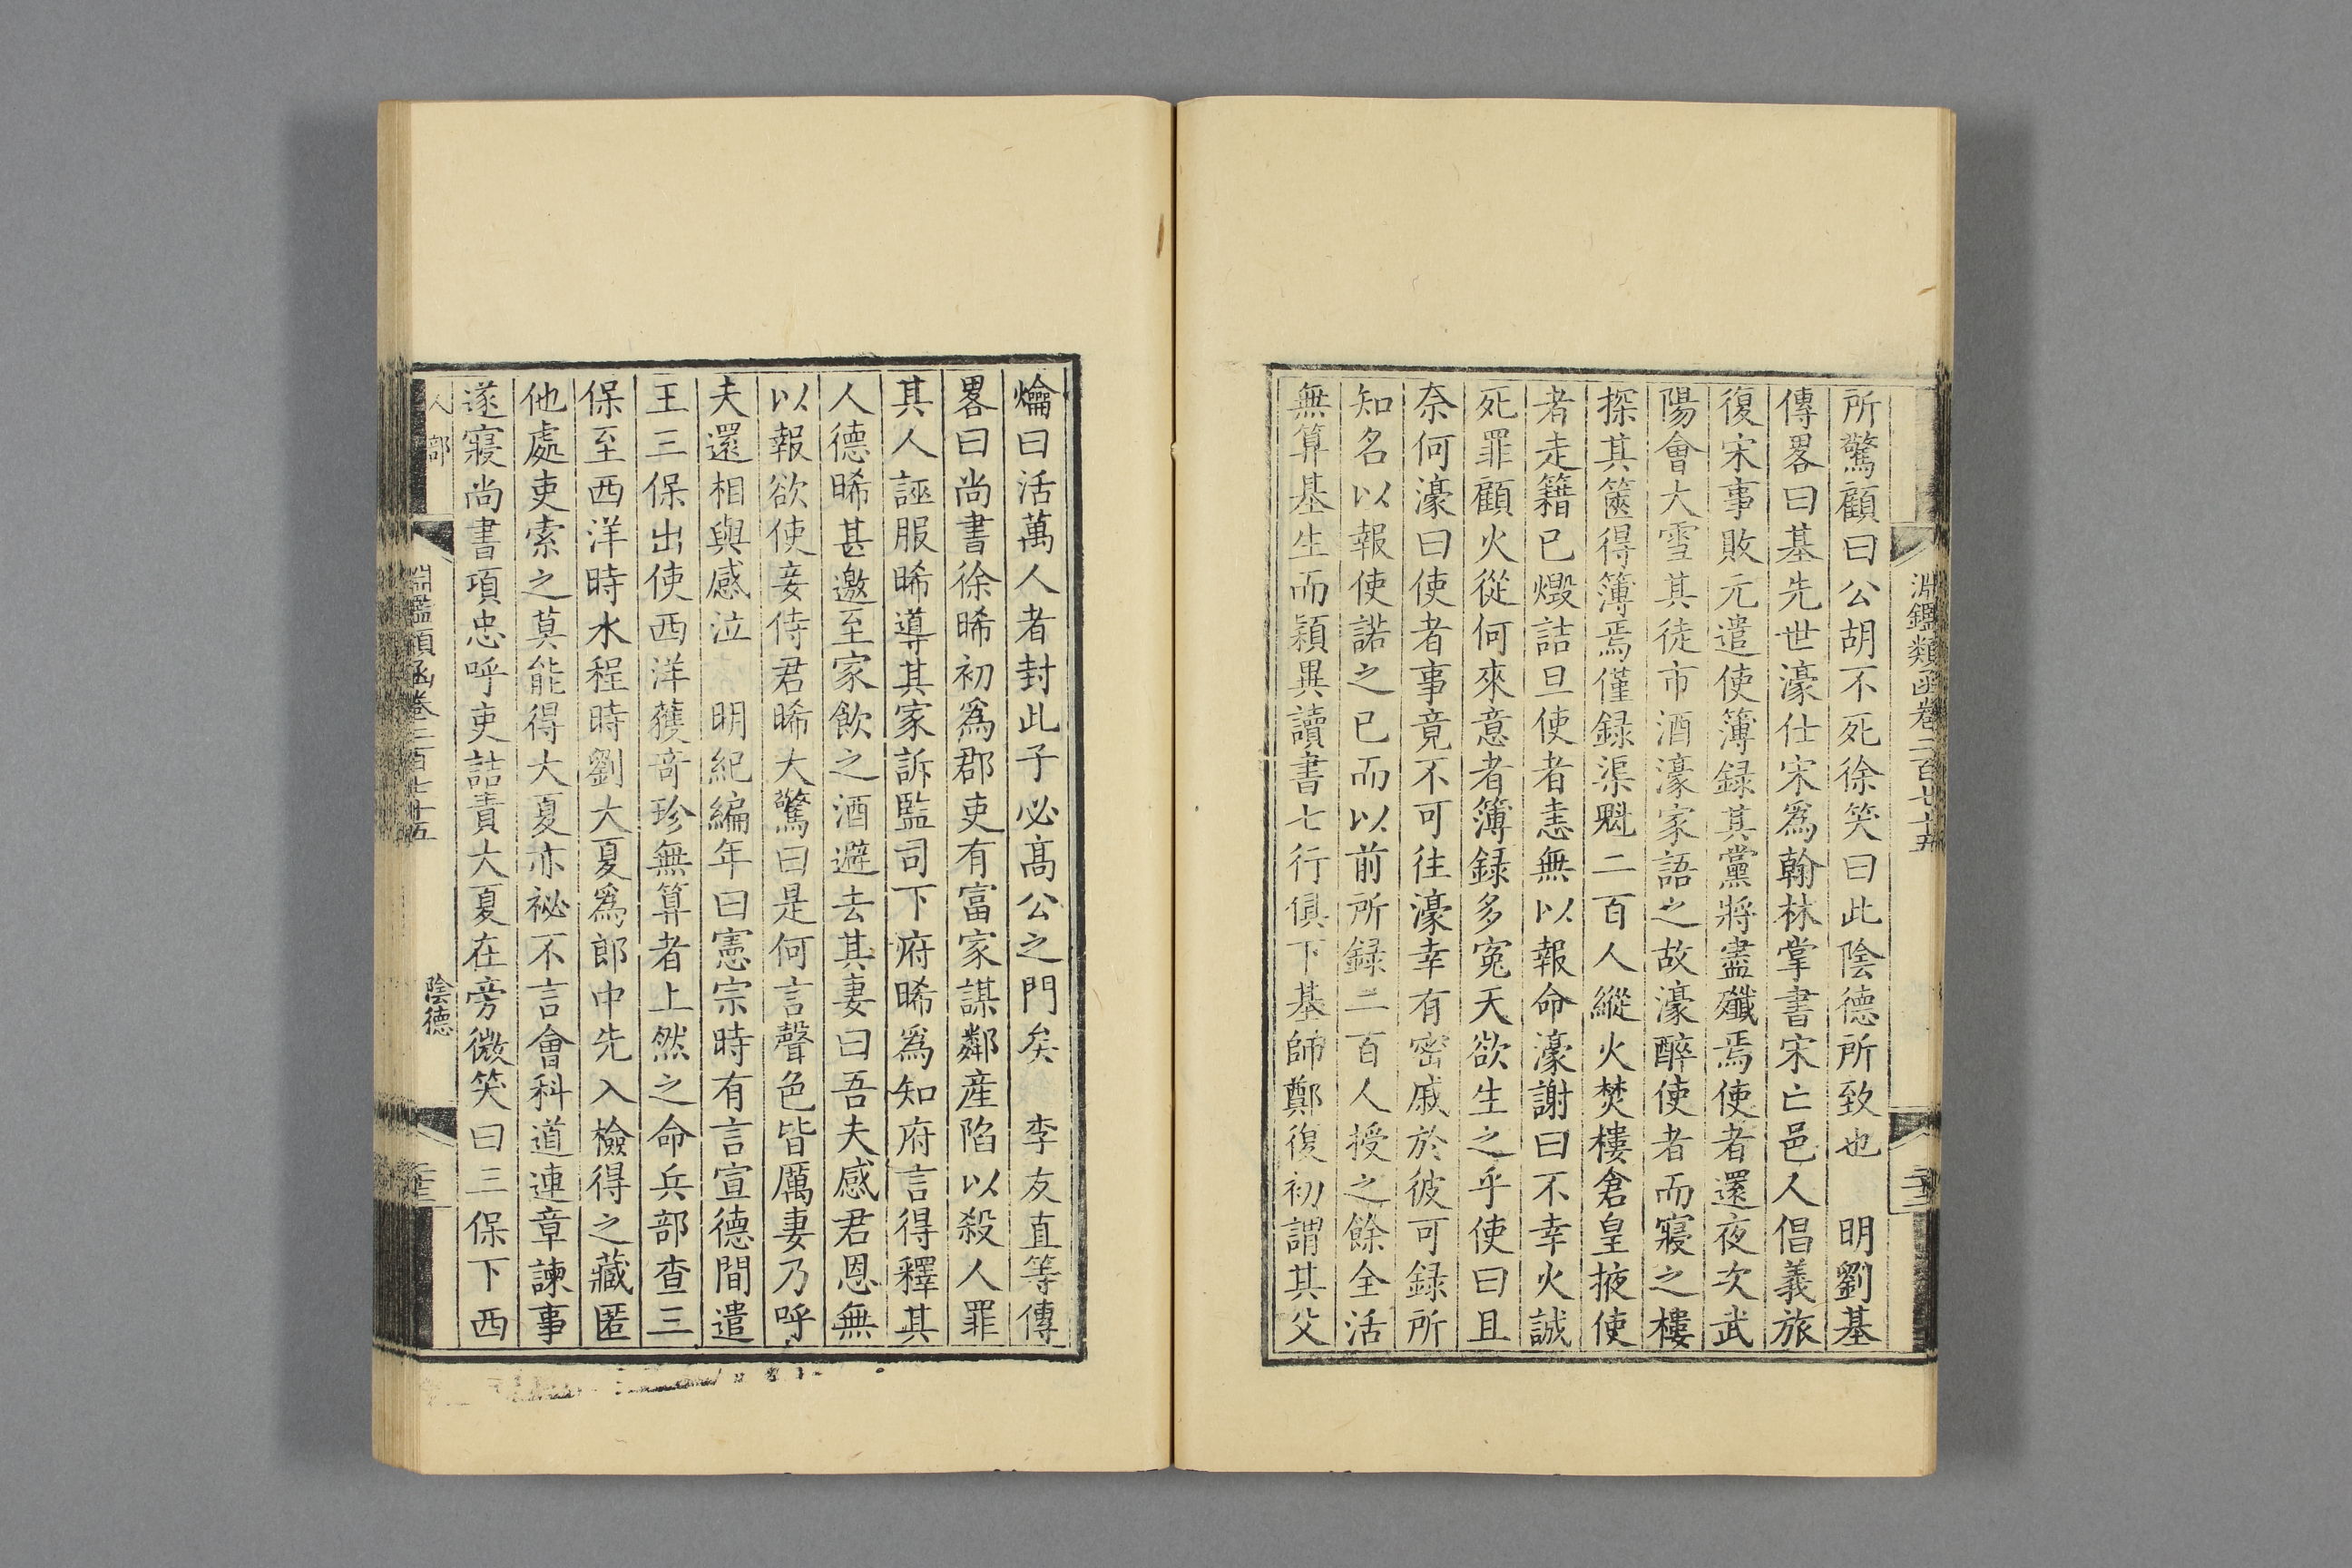 淵鑑類函卷二百七十五
二十三
所驚顧曰公胡不死徐笑曰此陰德所致也　明劉基
傳畧曰基先世濠仕宋爲翰林掌書宋亡邑人倡義旅
復宋事敗元遣使簿録其黨將盡殲焉使者還夜次武
陽會大雪其徒市酒濠家語之故濠醉使者而寢之樓
探其篋得簿焉僅録渠魁二百人縱火焚樓倉皇掖使
者走籍已燬詰旦使者恚無以報命濠謝曰不幸火誠
死罪顧火從何來意者簿録多寃天欲生之乎使曰且
奈何濠曰使者事竟不可往濠幸有密戚於彼可録所
知名以報使諾之已而以前所録二百人授之餘全活
無算基生而穎異讀書七行俱下基師鄭復初謂其父
爚曰活萬人者封此子必高公之門矣　李友直等傳
畧曰尚書徐晞初爲郡吏有富家謀鄰產陷以殺人罪
其人誣服晞導其家訴監司下府晞爲知府言得釋其
人德晞甚邀至家飲之酒避去其妻曰吾夫感君恩無
以報欲使妾侍君晞大驚曰是何言聲色皆厲妻乃呼
夫還相與感泣　明紀編年曰憲宗時有言宣德間遣
王三保出使西洋獲奇珍無算者上然之命兵部查三
保至西洋時水程時劉大夏爲郎中先入檢得之藏匿
他處吏索之莫能得大夏亦祕不言會科道連章諫事
遂寢尚書項忠呼吏詰責大夏在旁微笑曰三保下西
人部
淵鑑類函卷二百七十五
陰德
二十三